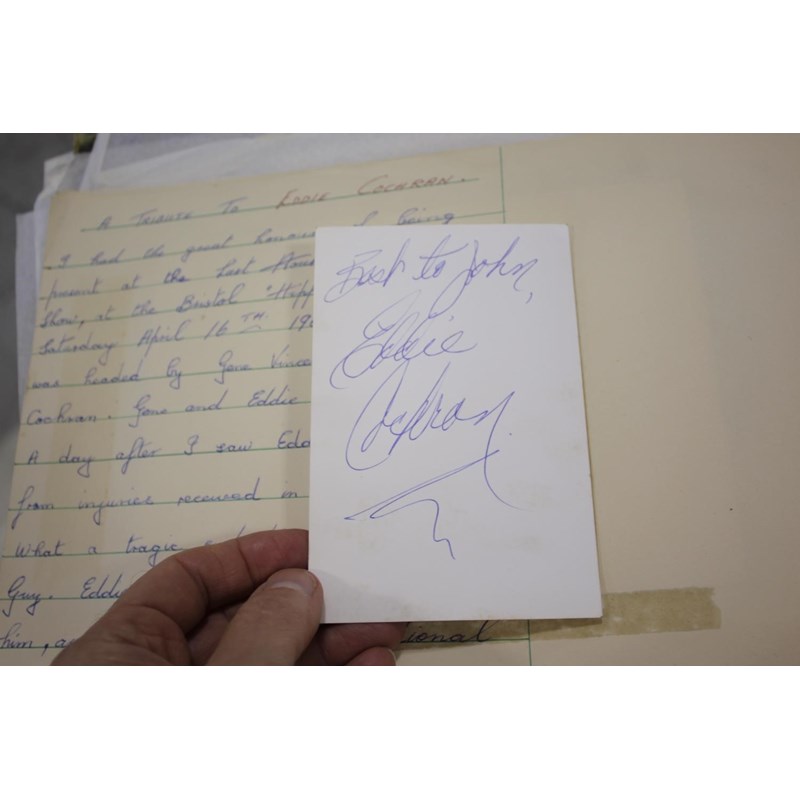 A TRIBUTE TO EDDIE COCHRAN.
I had the great honour of being
present at the last House
Show, at the Bristol "Hipp
Saturday April 16TH. 19
was headed by Gene Vince
Cochran. Gene and Eddie
A day after I saw Edd
from injuries received in
What a tragic
Guy. Eddie
him, a
tional
Best to John,
Eddie
Cochran